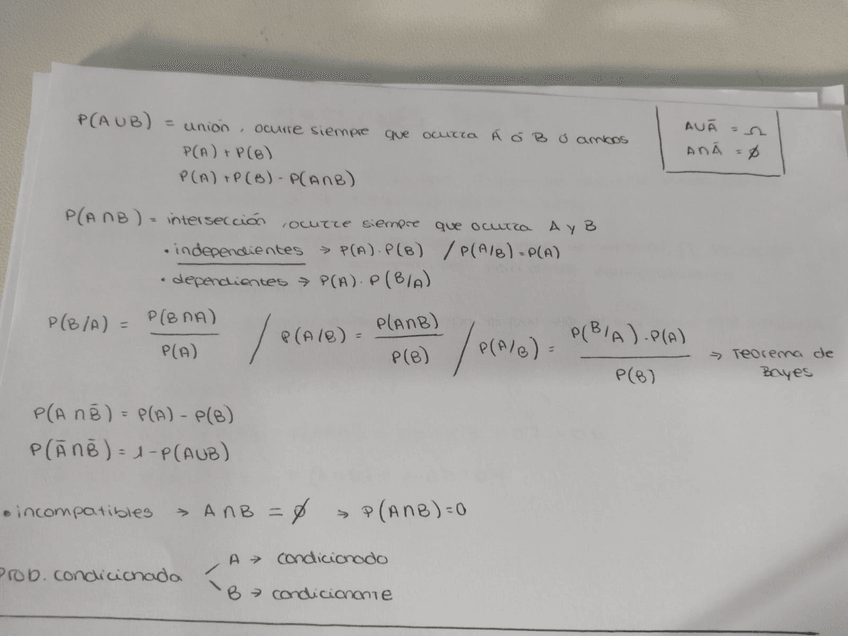 P(A∪B) = unión, ocurre siempre que ocurra A ó B ó ambos
P(A) + P(B)
P(A) + P(B) - P(A∩B)
A∪Ā = Ω
A∩Ā = ∅
P(A∩B) = intersección, ocurre siempre que ocurra A y B
• independientes → P(A)·P(B) / P(A/B) = P(A)
• dependientes → P(A)·P(B/A)
P(B/A) = P(B∩A) / P(A) / P(A/B) = P(A∩B) / P(B) / P(A/B) = P(B/A)·P(A) / P(B) → Teorema de Bayes
P(A∩B̄) = P(A) - P(B)
P(Ā∩B̄) = 1 - P(A∪B)
• incompatibles → A∩B = ∅ → P(A∩B) = 0
Prob. condicionada
A → condicionado
B → condicionante